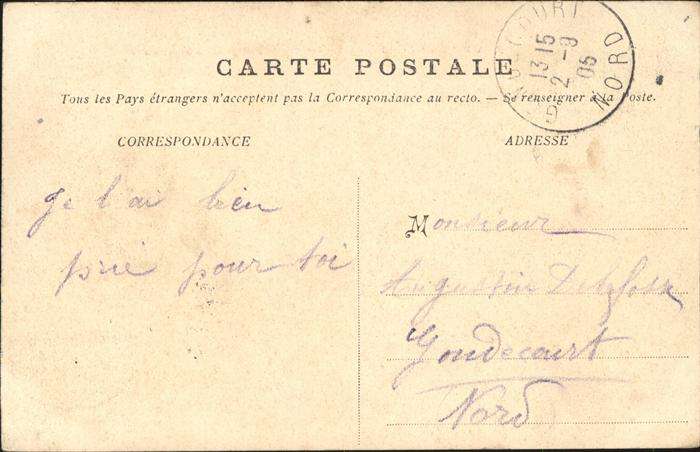 CARTE POSTALE
Tous les Pays étrangers n'acceptent pas la Correspondance au recto. — Se renseigner à la Poste.
CORRESPONDANCE
Je l'ai bien
prié pour toi
ADRESSE
Monsieur
Augustin
Gondecourt
Nord
GONDECOURT
13 15
2 - 9
05
NORD